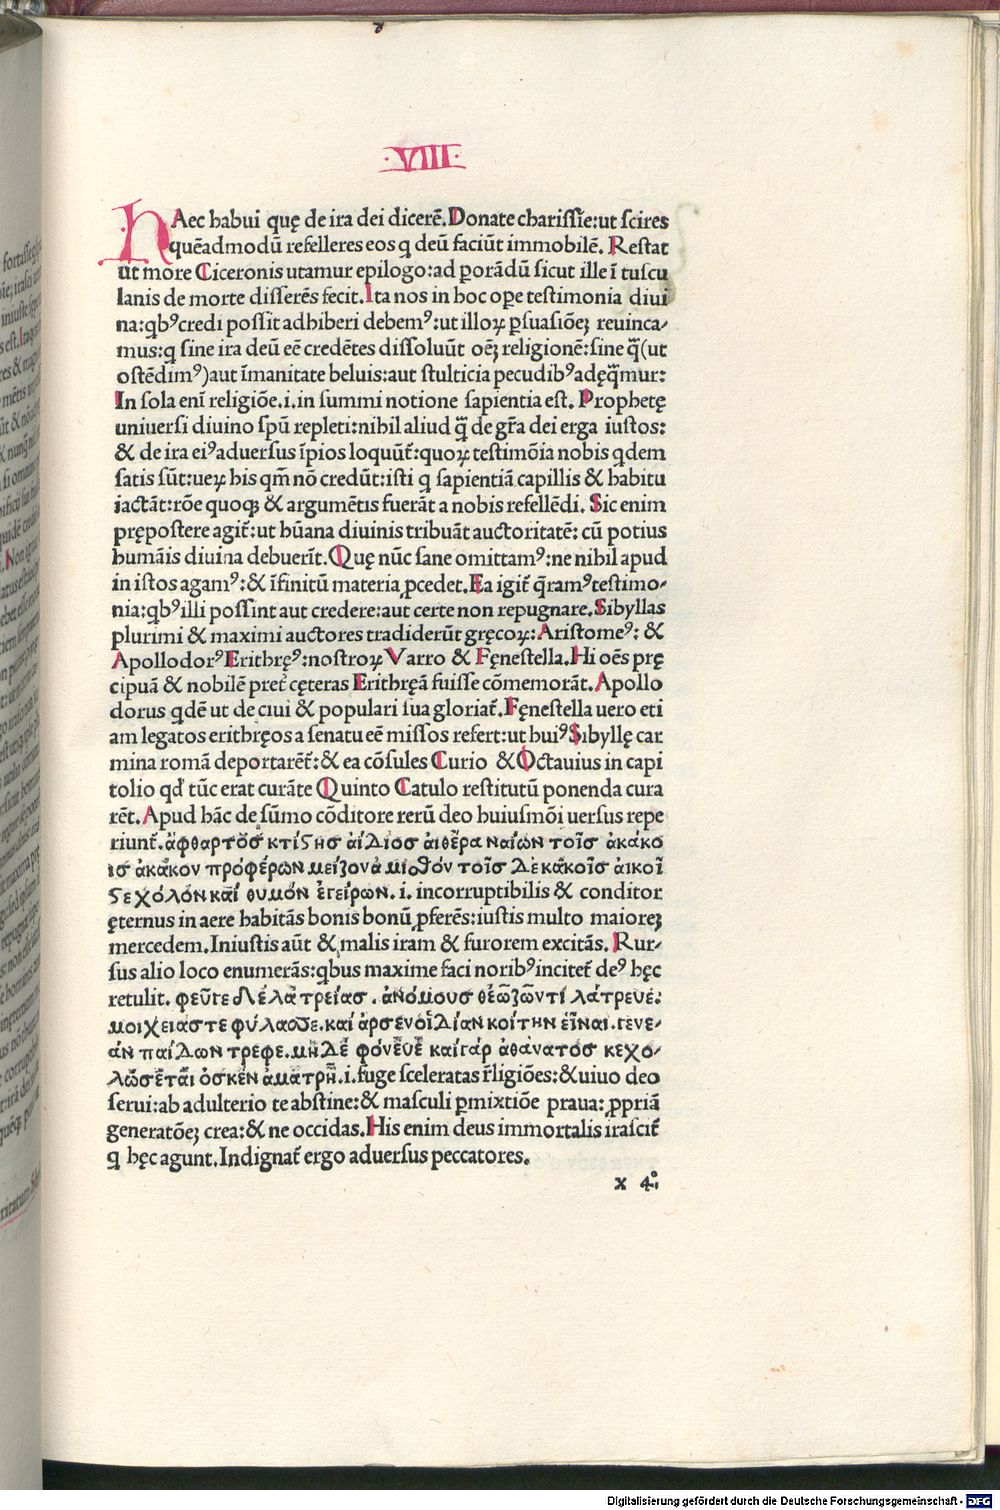 ·VIII·
HAec habui quę de ira dei dicerē. Donate charissīe: ut scires
quēadmodū refelleres eos q deū faciūt immobilē. Restat
ut more Ciceronis utamur epilogo: ad ꝑorādū sicut ille ī tuscu
lanis de morte disserēs fecit. Ita nos in hoc oꝑe testimonia diui
na: qbꝰ credi possit adhiberi debemꝰ: ut illoꝝ ꝑsuasiōeʒ reuinca-
mus: q sine ira deū eē credētes dissoluūt oēʒ religionē: sine q̄ (ut
ostēdimꝰ) aut īmanitate beluis: aut stulticia pecudibꝰ adęq̄mur:
In sola enī religiōe .i. in summi notione sapientia est. Prophetę
uniuersi diuino spū repleti: nihil aliud q̄ de gr̄a dei erga iustos:
& de ira eiꝰ aduersus īpios loquūt̄: quoꝝ testimōia nobis qdem
satis sūt: ueꝝ his qm̄ nō credūt: isti q sapientiā capillis & habitu
iactāt: rōe quoqꝫ & argumētis fuerāt a nobis refellēdi. Sic enim
prępostere agit̄: ut hūana diuinis tribuāt auctoritatē: cū potius
humāis diuina debuerīt. Quę nūc sane omittamꝰ: ne nihil apud
in istos agamꝰ: & īfinitū materia ꝓcedet. Ea igit̄ q̄ramꝰ testimo-
nia: qbꝰ illi possint aut credere: aut certe non repugnare. Sibyllas
plurimi & maximi auctores tradiderūt gręcoꝝ: Aristomeꝰ: &
Apollodorꝰ Erithręꝰ: nostroꝝ Varro & Fęnestella. Hi oēs prę
cipuā & nobilē pret̄ cęteras Erithręā fuisse cōmemorāt. Apollo
dorus qdē ut de ciui & populari sua gloriat̄. Fęnestella uero eti
am legatos erithręos a senatu eē missos refert: ut huiꝰ Sibyllę car
mina romā deportarēt̄: & ea cōsules Curio & Octauius in capi
tolio qđ tūc erat curāte Quinto Catulo restitutū ponenda cura
rēt. Apud hāc de sūmo cōditore rerū deo huiusmōi uersus repe
riunt̄. ἀφθαρτὸσ κτίϛησ αἰΔιοσ αἰθέρα ναίων τοῖσ ἀκάκο
ισ ἀκακον προφέρων μείζονα μιθὸν τοῖσ Δεκάκοῖσ αικοῖ
ϛε χόλόν καί θυμὸν ἐγείρων. i. incorruptibilis & conditor
ęternus in aere habitās bonis bonū ꝓferēs: iustis multo maioreʒ
mercedem. Iniustis aūt & malis iram & furorem excitās. Rur-
sus alio loco enumerās: qbus maxime faci noribꝰ incitet̄ deꝰ hęc
retulit. φεῦτε Δὲλατρείασ. ἀνόμουσ θέωζῶντί λάτρευέ.
μοιχείαστε φύλαοϑε. καί ἀρσενοῖΔίαν κοίτην εῖναι. γενε-
ὰν παίΔων τρέφε. μηΔὲ φόνεῦε καίγάρ ἀθάνατοσ κεχο-
λῶσεται ὁσκέν ἁματρῆ. i. fuge sceleratas r̄ligiōes: & uiuo deo
serui: ab adulterio te abstine: & masculi ꝑmixtiōe praua: ꝓpriā
generatōeʒ crea: & ne occidas. His enim deus immortalis irascit̄
q hęc agunt. Indignat̄ ergo aduersus peccatores.
x 4
Digitalisierung gefördert durch die Deutsche Forschungsgemeinschaft - DFG